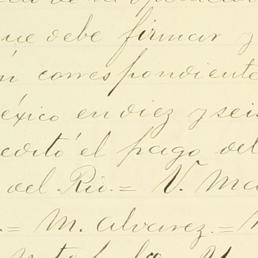 que debe firmar y
n correspondiente
éxico en diez y seis
editó el pago del
del Rio.= V. Ma
.= M. Alvarez.=